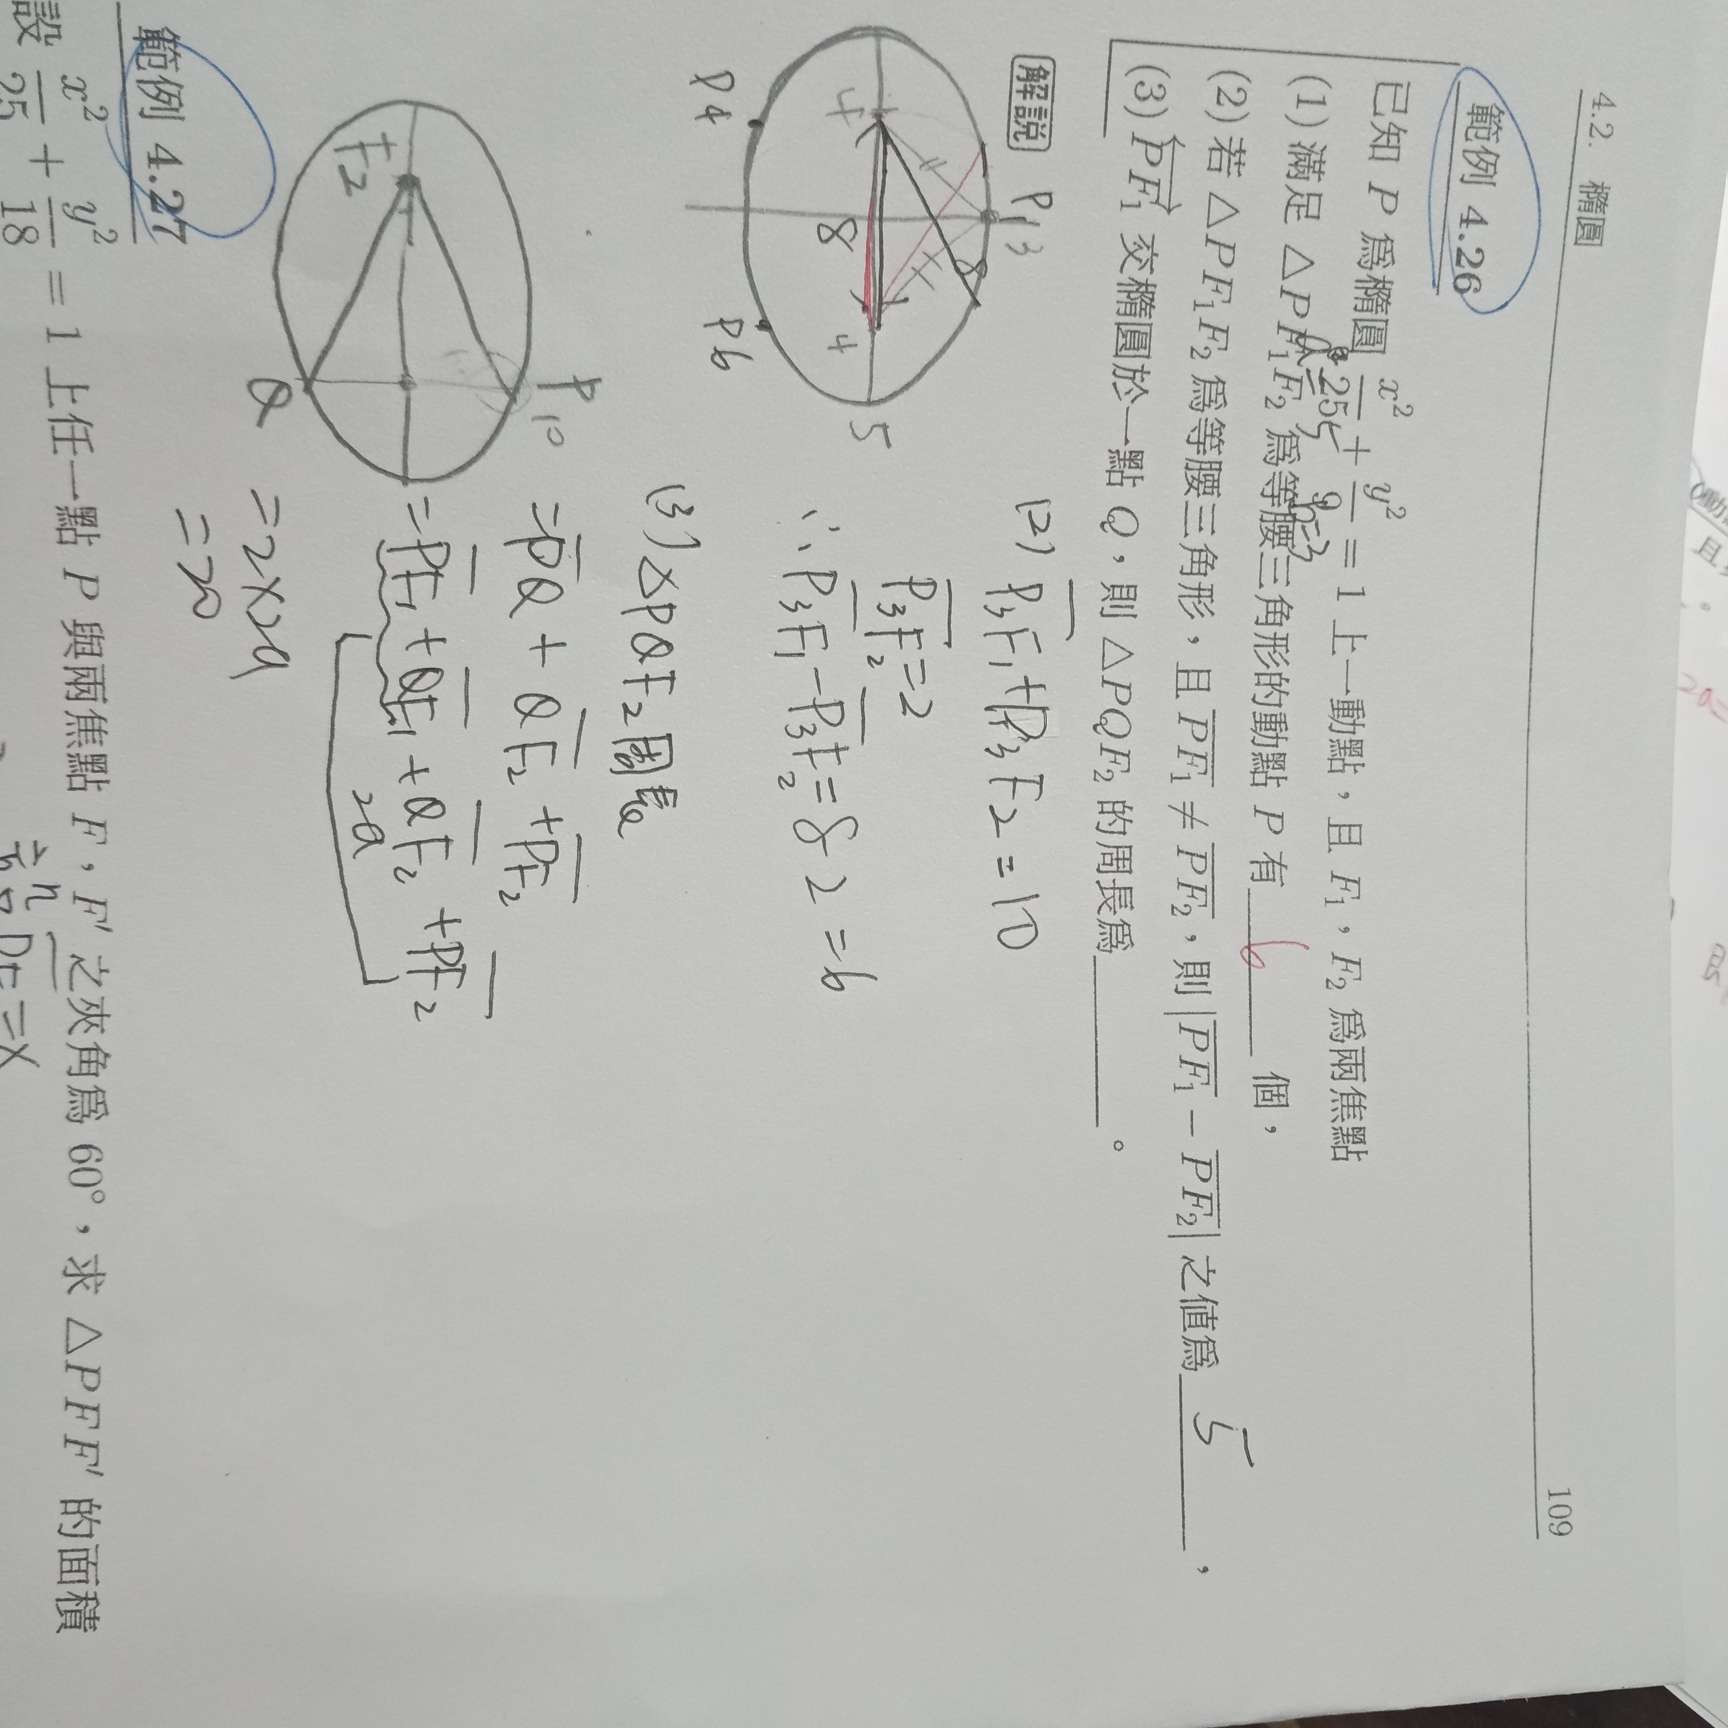 4.2. 橢圓
109
範例 4.26
已知 P 爲橢圓 x²/25 + y²/9 = 1 上一動點，且 F₁，F₂ 爲兩焦點
a=5
b=3
(1) 滿足 △PF₁F₂ 爲等腰三角形的動點 P 有 6 個，
(2) 若 △PF₁F₂ 爲等腰三角形，且 PF₁ ≠ PF₂，則 |PF₁ − PF₂| 之值爲 5，
(3) PF₁ 交橢圓於一點 Q，則 △PQF₂ 的周長爲 。
解說
P₁ 3
8
4
8
4
5
P4
P6
(2) P₃F₁ + P₃F₂ = 10
P₃F₂ = 2
∴ P₃F₁ − P₃F₂ = 8 2 = 6
(3) △PQF₂ 周長
= PQ + QF₂ + PF₂
= PF₁ + QF₁ + QF₂ + PF₂
2a
= 2×2a
= 20
P
10
F₂
Q
範例 4.27
設 x²/25 + y²/18 = 1 上任一點 P 與兩焦點 F，F′ 之夾角爲 60°，求 △PFF′ 的面積
PF = x